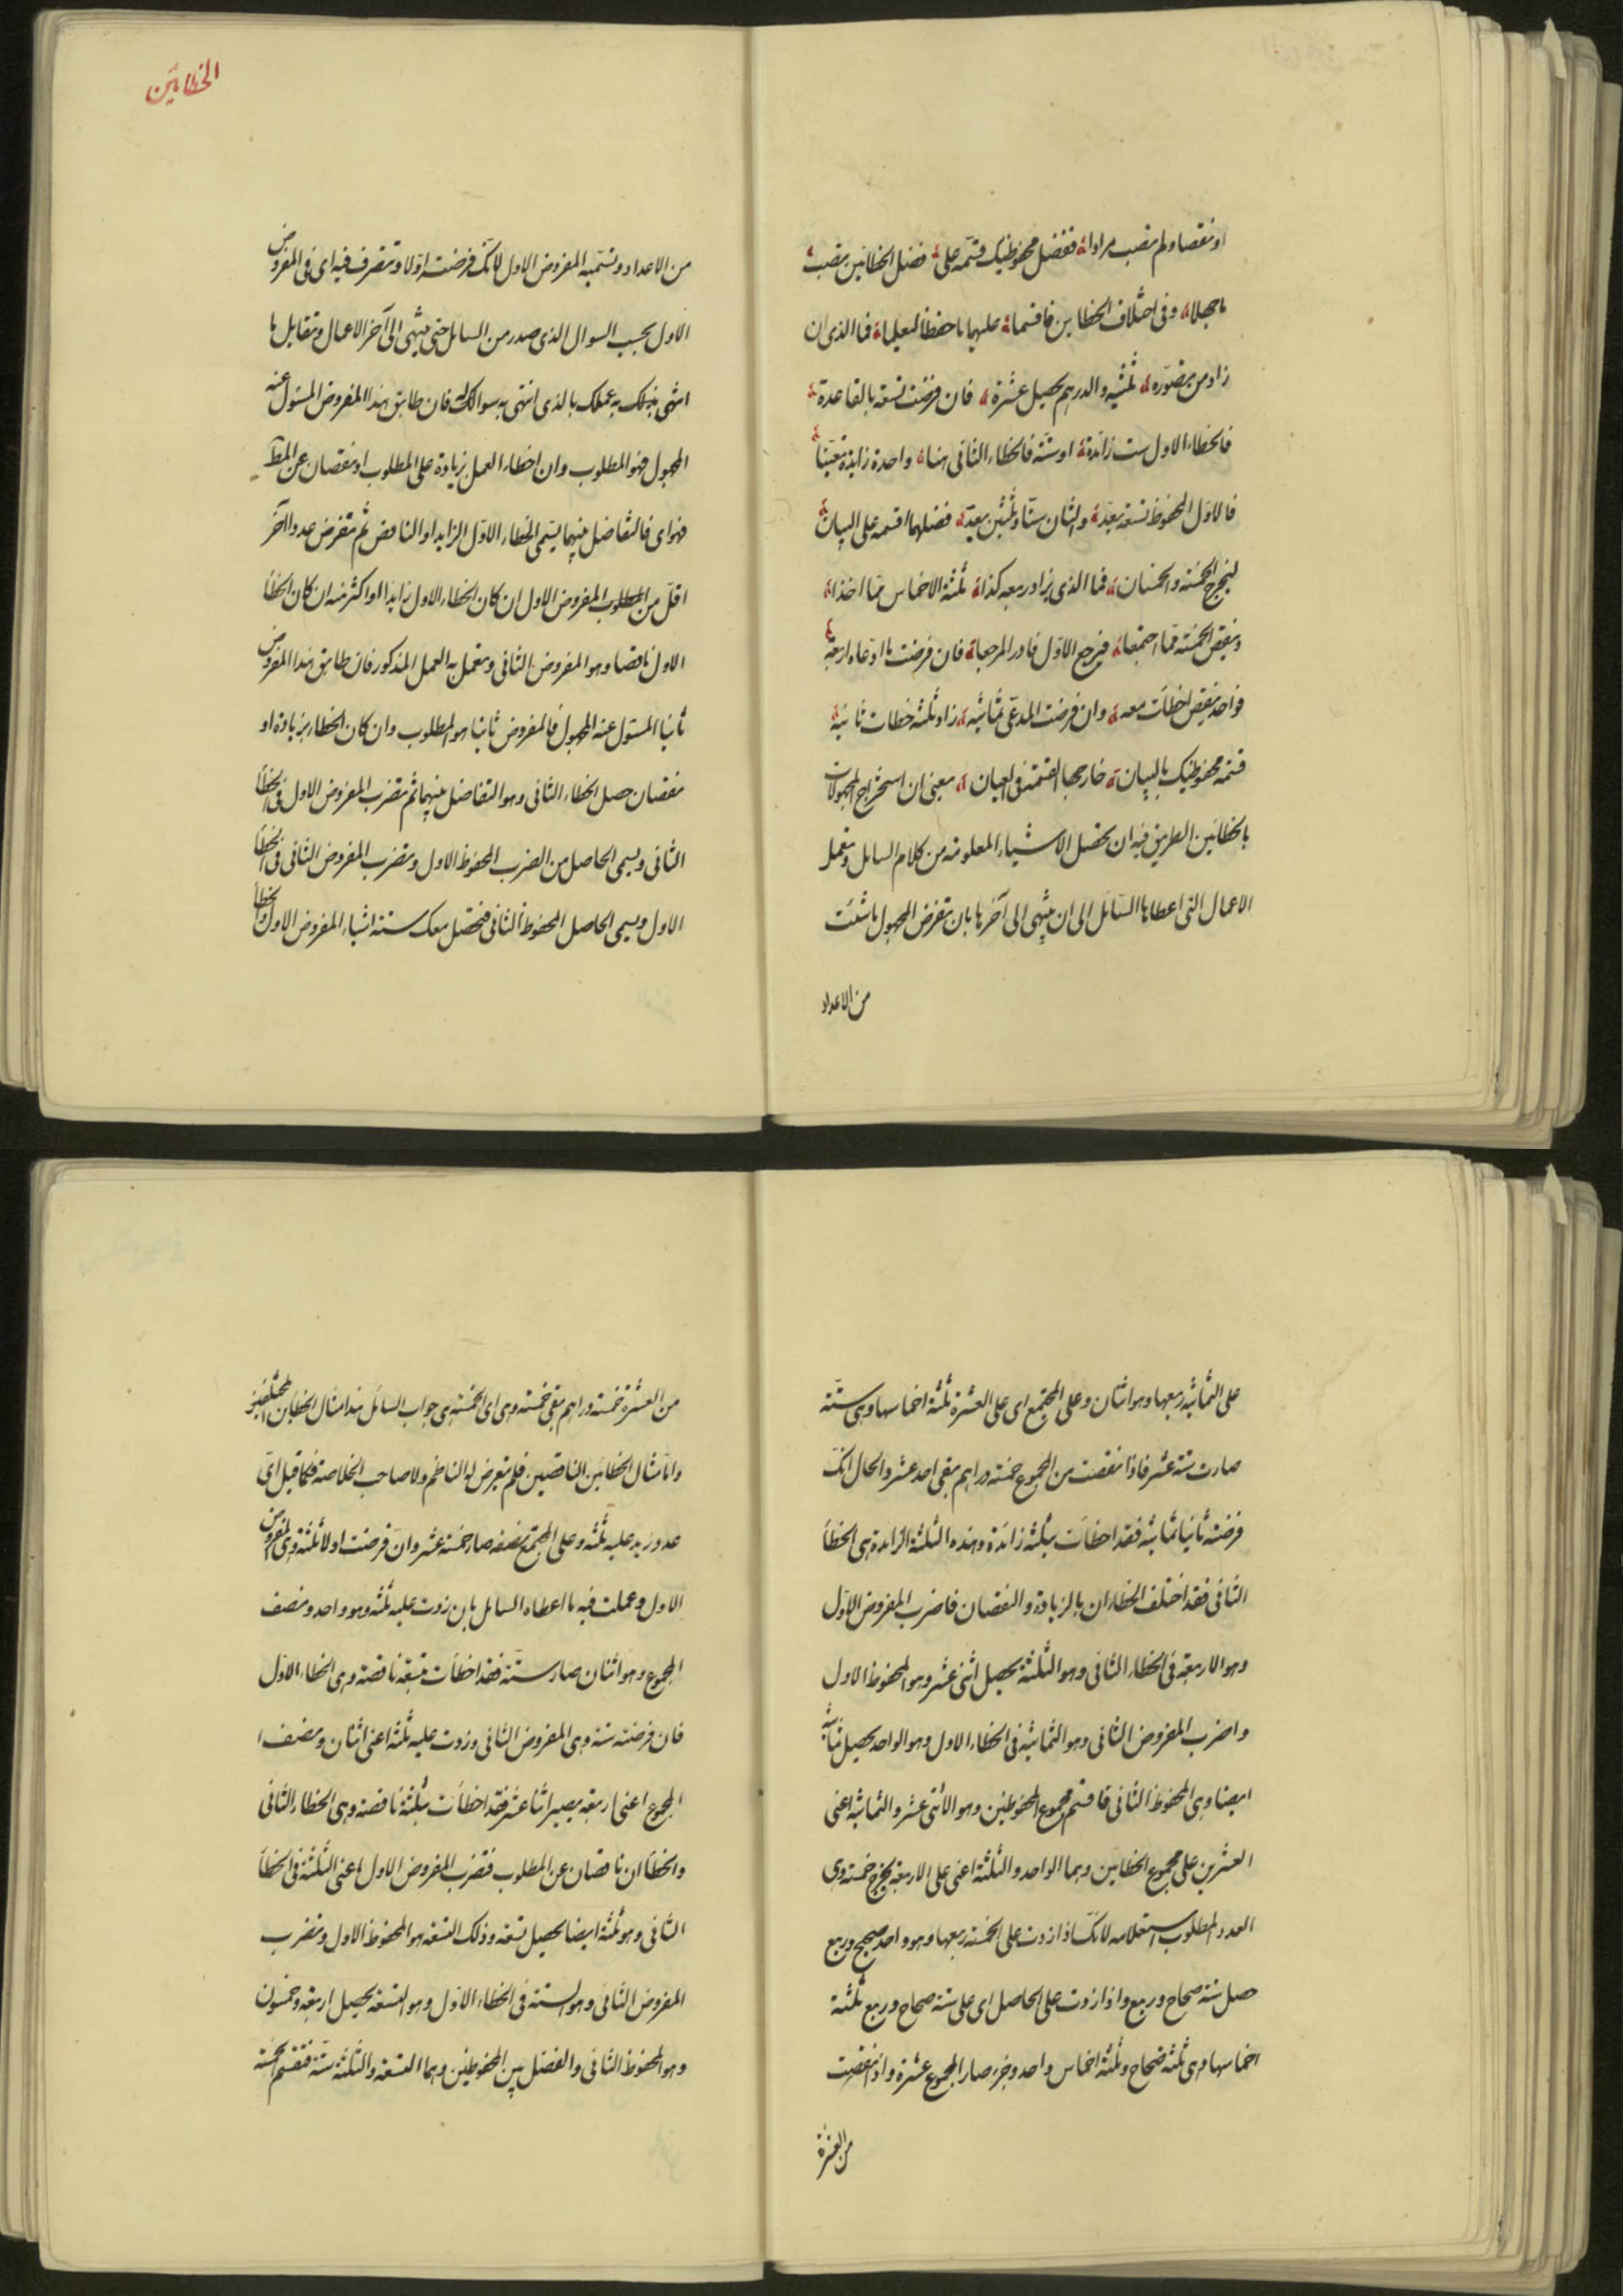 او نقصا ولم تصب مرادا؞ ففضل محفوظيك قسّمه على؞ فضل الخطائين تصب؞
ما جهلا؞ وفى اختلاف الخطاين فاقسما؞ عليهما ما حفظا لتعلما؞ فما الذى ان
زاد من تصوّره؞ ثلثيه والدرهم يحصل عشرة؞ فان فرضت تسعة بالقاعدة؞
فالخطاء الاول ست زائدة؞ او ستّة فالخطاء الثانى هنا؞ واحدة زايدة تعيّنا؞
فالاوّل المحفوظ تسعة تعِدّ؞ والثان ستّا وثلثين تعِدّ؞ فضلهما اقسمه على البيان؞
ليخرج الخمسة والخمسان؞ فما الذى يزاد ربعه كذا؞ ثلثة الاخماس ممّا اخذا؞
ونقص الخمسة ممّا اجتمعا؞ فيرجع الاوّل فادر المرجعا؞ فان فرضت ما ادّعاه اربعة؞
فواحد بنقص اخطأت معه؞ وان فرضت المدعّى ثمانيه؞ زاد ثلثة خطات ثانية؞
قسمة محفوظيك بالبيان؞ خارجها القسمة فى العيان؞ معنى ان استخراج المجهولات
بالخطائين الطريق فيه ان تحصل الاشياء المعلومة من كلام السايل وتعمل
الاعمال التى اعطاها السّائل الى ان ينتهى الى آخرها بان تفرض المجهول ما شئت
من الاعداد
الخطائين
من الاعداد وتسّميه المفروض الاول لانّك فرضته اوّلا وتتصرف فيه اى فى المفروض
الاول بحسب السوال الذى صدر من السائل حتى ينتهى الى آخر الاعمال وتقابل ما
انتهى بذلك به عملك بالذى انتهى به سوالك له فان طابق هذا المفروض المسئول عنه
المجهول فهو المطلوب وان اخطاء العمل بزيادة على المطلوب او نقصان عن المط
فهو اى فالتفاضل بينهما يسّمى الخطاء الاوّل الزايد او الناقص ثم تفرض عددا آخر
اقلّ من المطلوب المفروض الاول ان كان الخطاء الاول زايدا او اكثر منه ان كان الخطأ
الاول ناقصا وهو المفروض الثانى وتعمل به العمل المذكور فان طابق هذا المفروض
ثانيا المسئول عنه المجهول فالمفروض ثانيا هو المطلوب وان كان الخطاء بزيادة او
نقصان حصل الخطاء الثانى وهو التفاضل بينهما ثم تضرب المفروض الاول فى الخطأ
الثانى ويسمى الحاصل من الضرب المحفوظ الاول وتضرب المفروض الثانى فى الخطأ
الاول ويسمى الحاصل المحفوظ الثانى فتحصّل معك ستة اشياء المفروض الاول والخطأ
على الثمانيه ربعها وهو اثنان وعلى المجتمع اى على العشرة ثلثة اخماسها وهى ستّة
صارت ستة عشر فاذا نقصت من المجموع خمسة دراهم بقى احد عشر والحال انّك
فرضته ثانيا ثمانية فقد اخطأت بثلثة زائدة وهذه الثلثة الزائدة هى الخطأ
الثانى فقد اختلف الخطاءان بالزيادة والنقصان فاضرب المفروض الاوّل
وهو الاربعة فى الخطاء الثانى وهو الثلثة يحصل اثنى عشر وهو المحفوظ الاول
واضرب المفروض الثانى وهو الثمانية فى الخطاء الاول وهو الواحد يحصل ثمانية
ايضا وهى المحفوظ الثانى فاقسم مجموع المحفوظين وهو الاثنى عشر والثمانية اعنى
العشرين على مجموع الخطاين وهما الواحد والثلثة اعنى على الاربعة يخرج خمسة وهى
العدد المطلوب استعلامه لانّك اذا زدت على الخمسة ربعها وهو واحد صحيح وربع
حصل ستة صحاح وربع واذا زدت على الحاصل اى على ستة صحاح وربع ثلثة
اخماسها وهى ثلثة صحاح وثلثة اخماس واحد وجزء صار المجموع عشرة واذا نقصت
من العشرة
من العشرة خمسة دراهم بقى خمسة وهى اى الخمسة هى جواب السائل هذا مثال الخطاين المختلفين
وامّا مثال الخطائين الناقصين فلم يتعرض له الناظم ولا صاحب الخلاصة فكما قيل اىّ
عدد زيد عليه ثلثه وعلى المجتمع نصفه صار خمسة عشر وان فرضت اولا ثلثة وهى المفروض
الاول وعملت فيه ما اعطاه السايل بان زدت عليه ثلثه وهو واحد ونصف
المجموع وهو اثنان صار ستّة فقد اخطأت بتسعة ناقصة وهى الخطاء الاوّل
فان فرضته ستة وهى المفروض الثانى وزدت عليه ثلثه اعنى اثنان ونصف
المجموع اعنى اربعة يصير اثنا عشر فقد اخطأت بثلثة ناقصة وهى الخطاء الثانى
والخطأان ناقصان عن المطلوب فتضرب المفروض الاول اعنى الثلثة فى الخطأ
الثانى وهو ثلثة ايضا يحصل تسعة وذلك التسعة هو المحفوظ الاول وتضرب
المفروض الثانى وهو الستة فى الخطاء الاوّل وهو التسعة يحصل اربعة وخمسون
وهو المحفوظ الثانى والفضل بين المحفوظين وهما التسعة والثلثة ستّة فتقسم خمسة